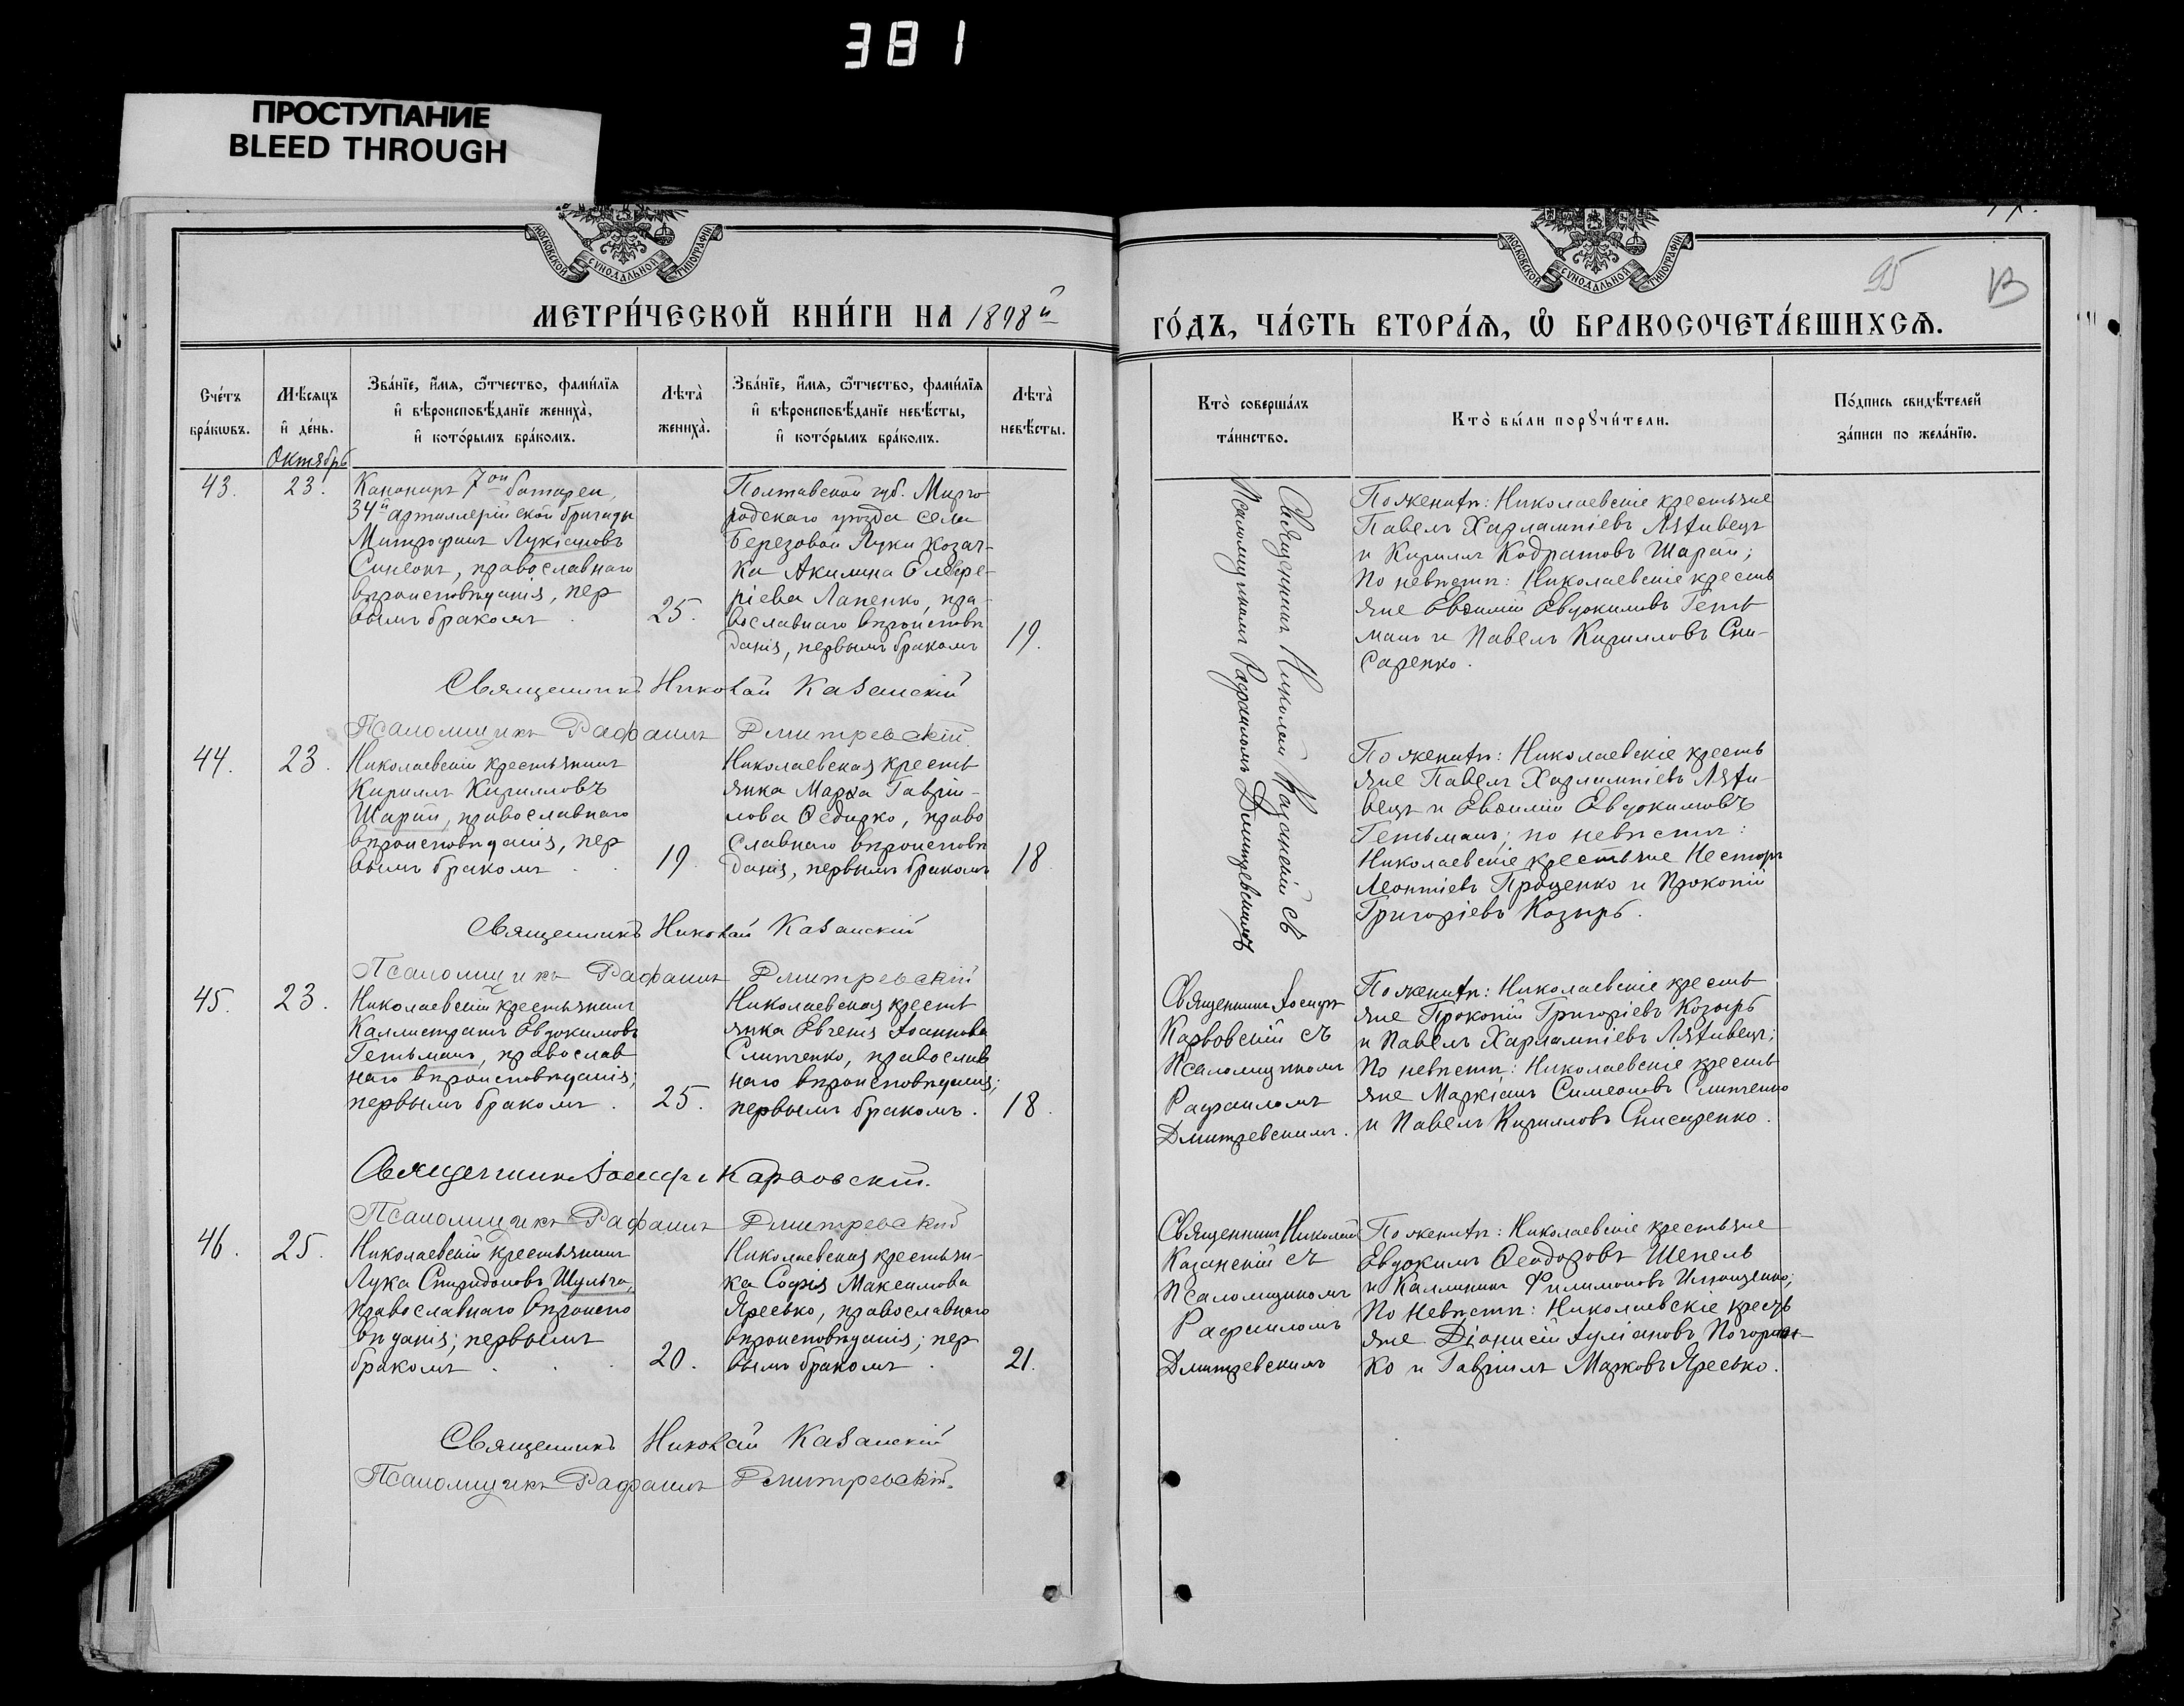 381
ПРОСТУПАНИЕ
BLEED THROUGH
МОСКОВСКОЙ СУНОДАЛЬНОЙ ТИПОГРАФІИ
МОСКОВСКОЙ СУНОДАЛЬНОЙ ТИПОГРАФІИ
95
МЕТРИ́ЧЕСКОЙ КНИ́ГИ НА 1898й
ГО́ДЪ, ЧА́СТЬ ВТОРА́Ѧ, Ѡ҆ БРАКОСОЧЕТА́ВШИХСѦ.
Сче́тъ
бра́кѡвъ.
Мѣ́сѧцъ
и҆ де́нь.
Октябрь
Зва́нїе, и҆́мѧ, ѻ҆́тчество, фами́лїѧ
и҆ вѣроисповѣ́данїе жениха̀,
и҆ кото́рымъ бра́комъ.
Лѣта̀
жениха̀.
Зва́нїе, и҆́мѧ, ѻ҆́тчество, фами́лїѧ
и҆ вѣроисповѣ́данїе невѣ́сты,
и҆ кото́рымъ бра́комъ.
Лѣта̀
невѣ́сты.
Кто̀ соверша́лъ
та́инство.
Кто̀ бы́ли порꙋчи́тели.
По́дпись свидѣ́телей
за́писи по жела́нїю.
43.
23.
Канониръ 7ой батареи,
34й артиллерійской бригады
Митрофанъ Лукіановъ
Синеокъ, православнаго
вѣроисповѣданія, пер
вымъ бракомъ
25.
Полтавской губ. Мирго
родскаго уѣзда села
Березовой Луки козач-
ка Акилина Елевфе-
ріева Лапенко, пра-
вославнаго вѣроисповѣ
данія, первымъ бракомъ
19.
Священникъ Николай Казанскій съ
Псаломщикомъ Рафаиломъ Дмитревскимъ
По женихѣ: Николаевскіе крестьяне
Павелъ Харлампіевъ Ляхивецъ
и Кириллъ Кодратовъ Шарай;
по невѣстѣ: Николаевскіе кресть
яне Евѳимій Евдокимовъ Геть
манъ и Павелъ Кирилловъ Сли-
саренко.
Священникъ Николай Казанскій
Псаломщикъ Рафаилъ Дмитревскій
44.
23.
Николаевскій крестьянинъ
Кириллъ Кирилловъ
Шарай, православнаго
вѣроисповѣданія, пер
вымъ бракомъ
19.
Николаевская кресть
янка Марѳа Гаврiи-
лова Ѳедирко, право
славнаго вѣроисповѣ
данія, первымъ бракомъ
18.
По женихѣ: Николаевскіе кресть
яне Павелъ Харлампіевъ Ляхи-
вецъ и Евѳимій Евдокимовъ
Гетьманъ; по невѣстѣ:
Николаевскіе крестьяне Несторъ
Леонтіевъ Проценко и Прокопій
Григоріевъ Козырь.
Священникъ Николай Казанскій
Псаломщикъ Рафаилъ Дмитревскій
45.
23.
Николаевскій крестьянинъ
Каллистратъ Евдокимовъ
Гетьманъ, православ
наго вѣроисповѣданія;
первымъ бракомъ.
25.
Николаевская кресть
янка Евгенія Іоаннова
Слипченко, православ
наго вѣроисповѣданія;
первымъ бракомъ.
18.
Священникъ Іосифъ
Карвовскій съ
Псаломщикомъ
Рафаиломъ
Дмитревскимъ.
По женихѣ: Николаевскіе кресть
яне Прокопій Григоріевъ Козырь
и Павелъ Харлампіевъ Ляхивецъ;
по невѣстѣ: Николаевскіе кресть
яне Маркіанъ Симеоновъ Слипченко
и Павелъ Кирилловъ Слисаренко.
Священникъ Іосифъ Карвовскій.
Псаломщикъ Рафаилъ Дмитревскій
46.
25.
Николаевскій крестьянинъ
Лука Спиридоновъ Шульга,
православнаго вѣроиспо
вѣданія; первымъ
бракомъ
20.
Николаевская крестьян-
ка Софія Максимова
Яресько, православнаго
вѣроисповѣданія; пер
вымъ бракомъ
21.
Священникъ Николай
Казанскій съ
Псаломщикомъ
Рафаиломъ
Дмитревскимъ
По женихѣ: Николаевскіе крестьяне
Евдокимъ Ѳеодоровъ Шепель
и Каллиникъ Филимоновъ Ильященко;
по невѣстѣ: Николаевскіе кресть
яне Діонисій Іуліановъ
ко и Гавріилъ Марковъ Яресько.
Священникъ Николай Казанскій
Псаломщикъ Рафаилъ Дмитревскій.